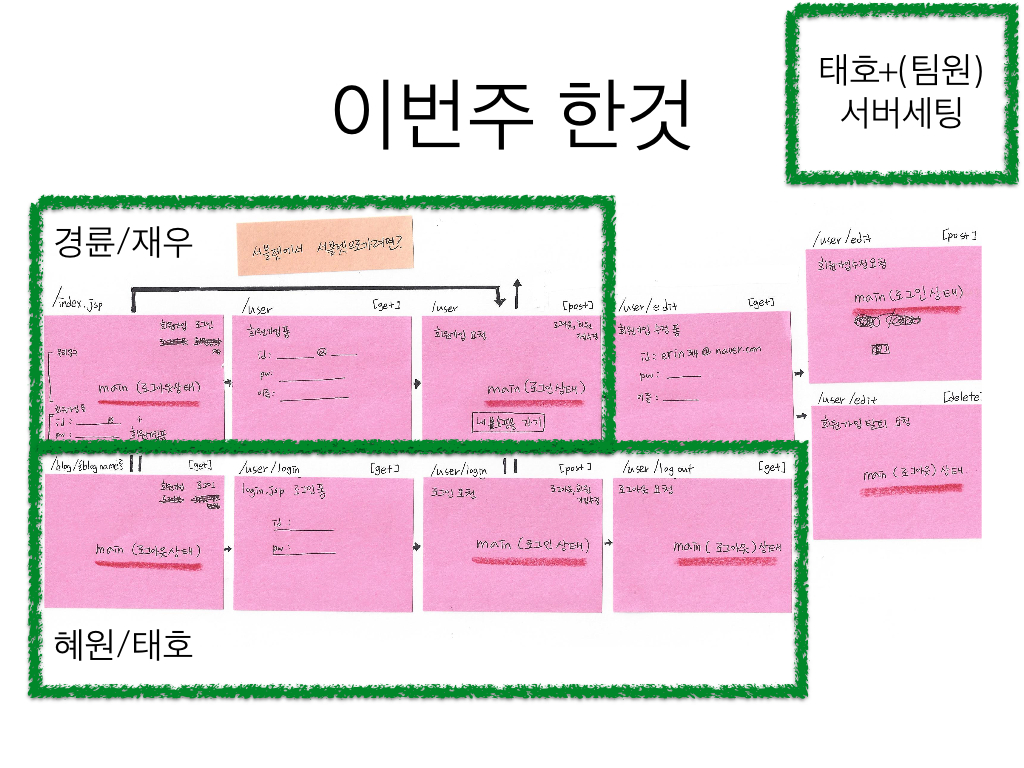 태호+(팀원)
서버세팅
이번주 한것
경륜/재우
서블릿에서 서블릿으로가려면?
/index.jsp
회원가입 로그인
main (로그아웃상태)
회원가입폼
id : @
pw :
회원가입폼
/user [get]
회원가입폼
id : @
pw :
이름 :
/user [post]
회원가입 요청
로그아웃, 회원
main (로그인 상태)
가기
/user/edit [get]
회원가입 수정 폼
id : erin314@naver.com
pw :
이름 :
/user/edit [post]
회원가입수정요청
main (로그인 상태)
/user/edit [delete]
회원가입 탈퇴 요청
main (로그아웃) 상태
/blog/{blogname} [get]
회원가입 로그인
main (로그아웃상태)
/user/login [get]
login.jsp 로그인폼
id :
pw :
/user/login [post]
로그인 요청
로그아웃, 회원
가입수정
main (로그인 상태)
/user/logout [get]
로그아웃 요청
main ( 로그아웃) 상태
혜원/태호